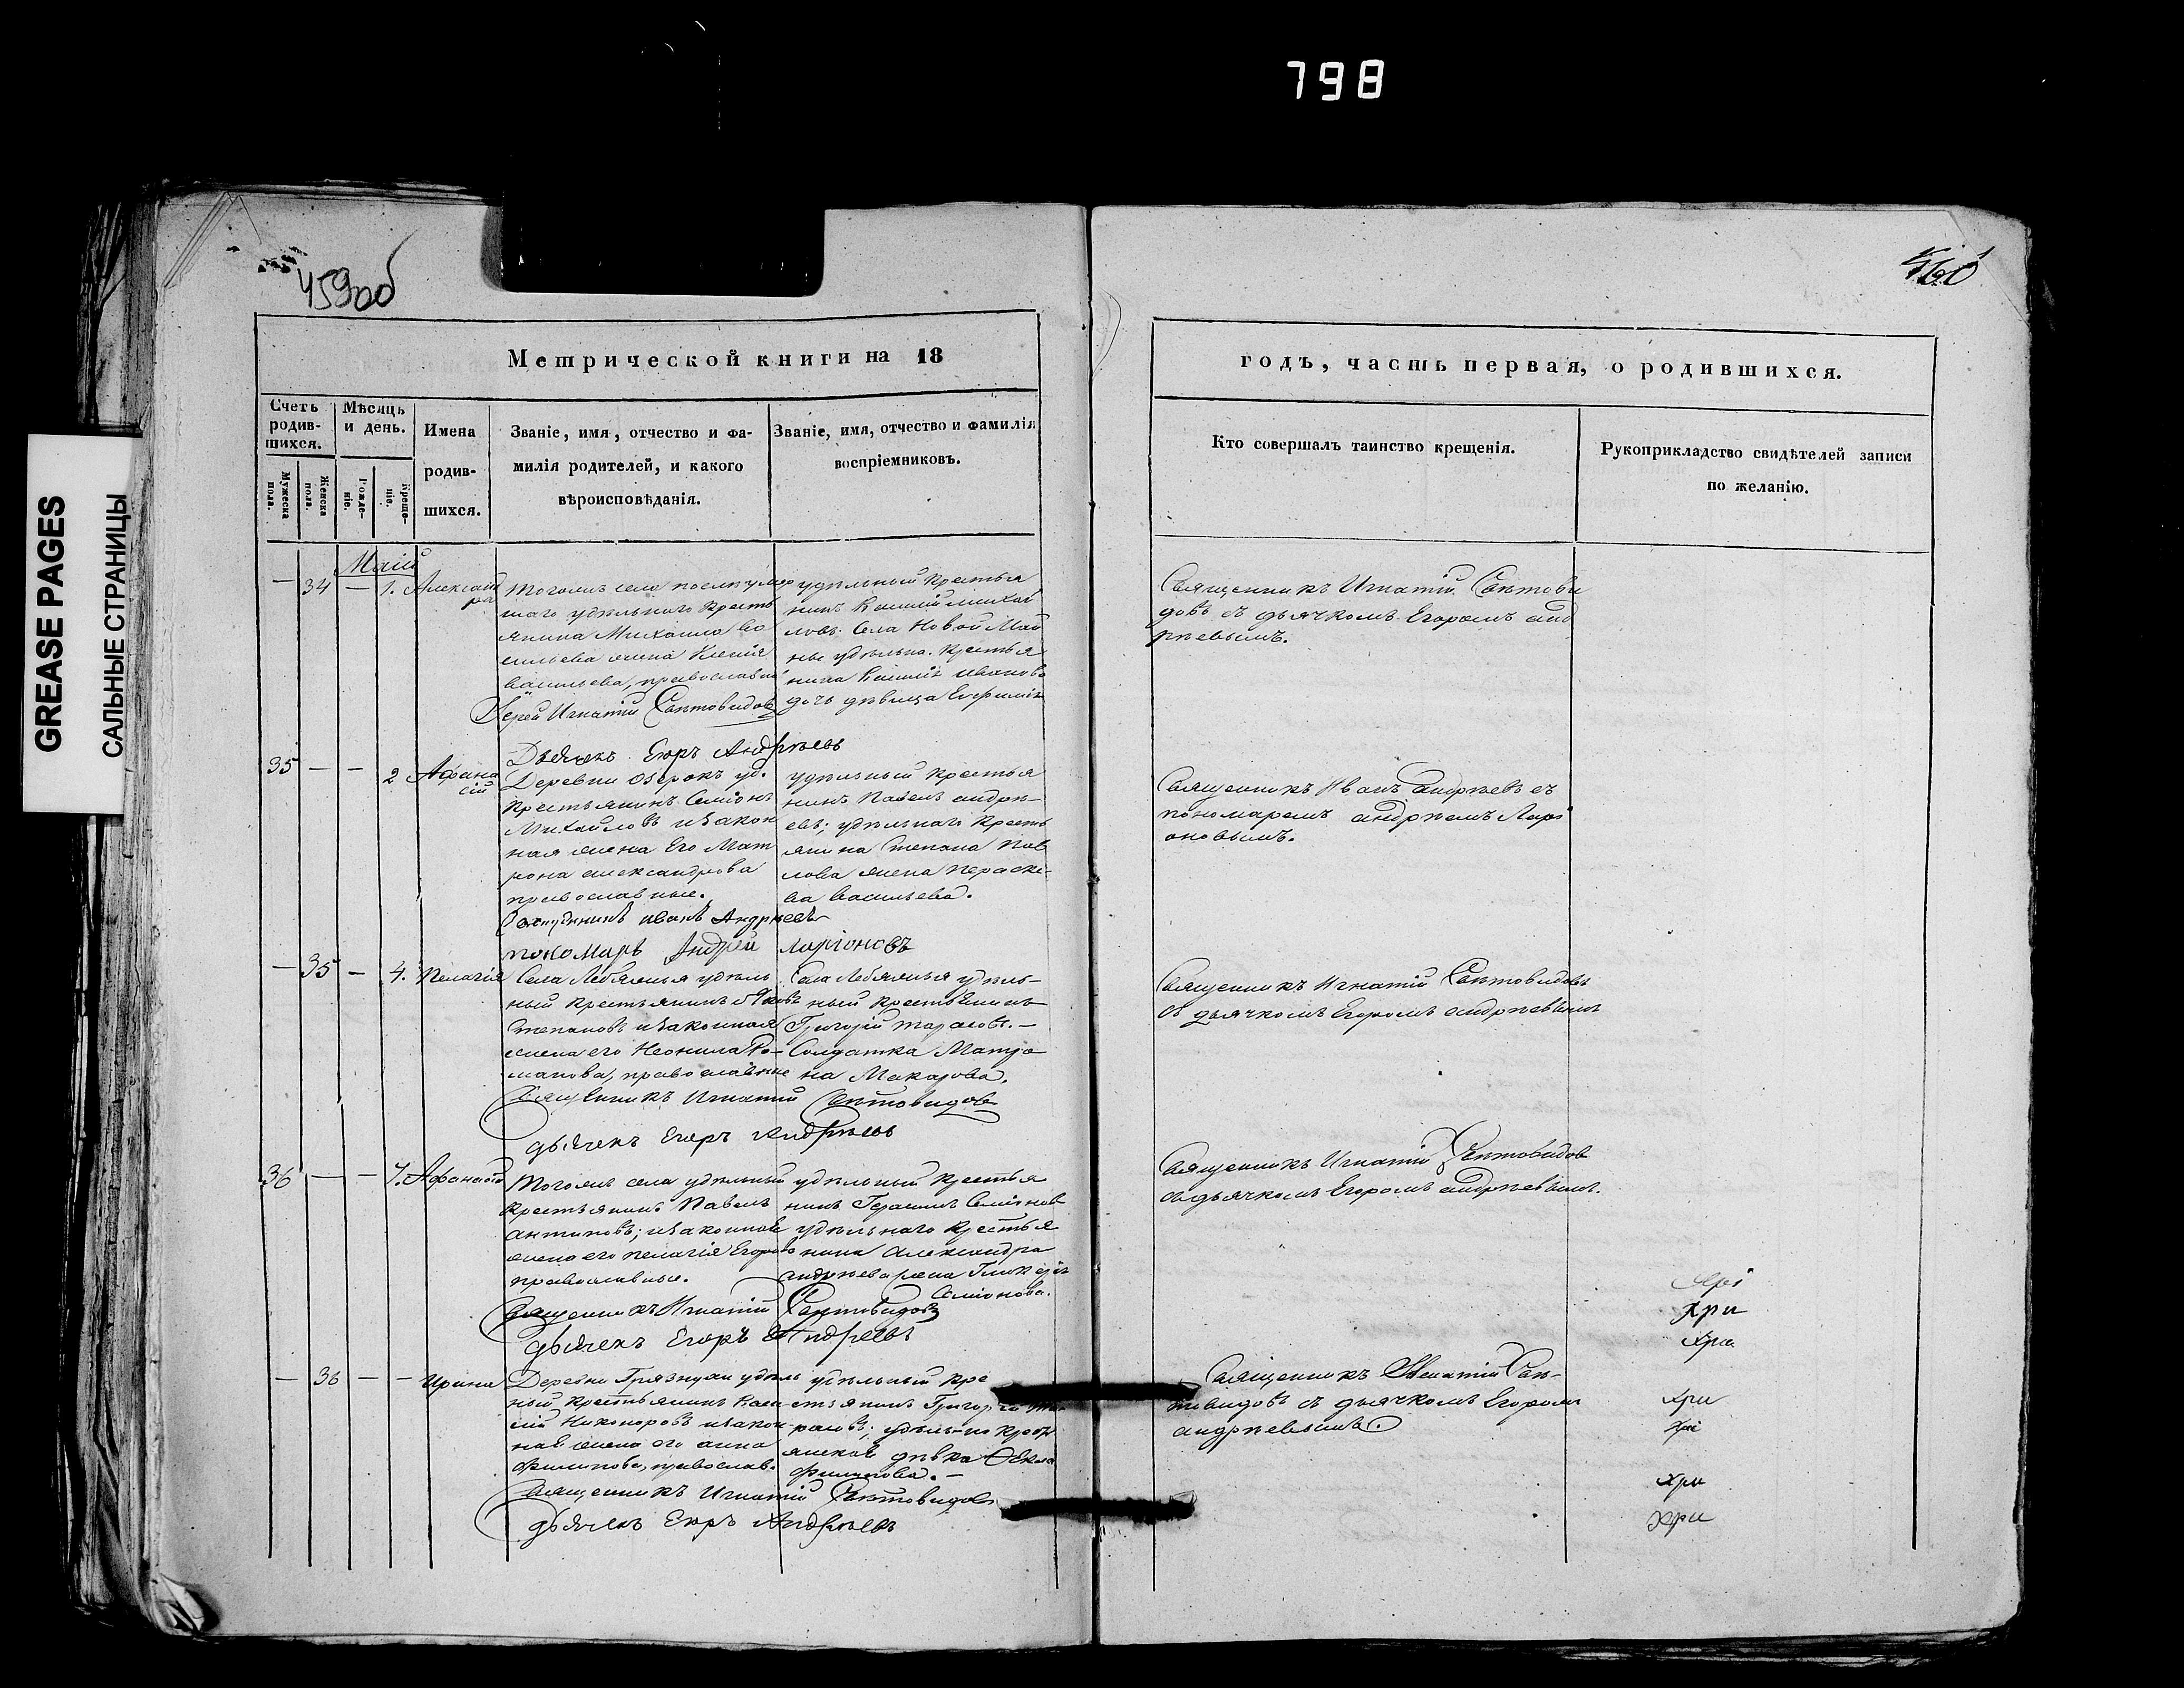 798
GREASE PAGES
САЛЬНЫЕ СТРАНИЦЫ
459об
460
Метрической книги на 18
годъ, часть первая, о родившихся.
Счетъ родив-шихся.
Мѣсяцъ и день.
Имена родив-шихся.
Званіе, имя, отчество и фа-
милія родителей, и какого
вѣроисповѣданія.
Званіе, имя, отчество и фамилія
воспріемниковъ.
Кто совершалъ таинство крещенія.
Рукоприкладство свидѣтелей записи
по желанію.
Мужеска пола.
Женска пола.
Рожде-ніе.
Креще-ніе.
Маій
— 34 — 1. Александра
Тогожъ села
шаго удѣльнаго кресть
янина Михаила Ва
сильева жена Ксенія
Васильева, православн
Іерей Игнатій Сантовидовъ
Дьячекъ Егоръ Андрѣевъ
удѣльный крестья
нинъ Василій Михай
ловъ. Села Новой Май
ны удѣльна. крестья
нина Василія Иванова
дочь дѣвица Евфимія
Священникъ Игнатій Сантови
довъ съ дьячкомъ Егоромъ Анд
рѣевымъ.
35 — — 2 Афанасій
Деревни Озерокъ уд.
крестьянинъ Семіонъ
Михайловъ и закон
ная жена его Мат
рона Александрова
православные.
Священникъ Иванъ Андрѣевъ
пономарь Андрей Ларіоновъ
удѣльный крестья
нинъ Павелъ Андрѣ-
евъ; удѣльнаго кресть
янина Степана Пав
лова жена Параске-
ва Васильева.
Священникъ Иванъ Андрѣевъ съ
пономаремъ Андрѣемъ Ларі
оновымъ.
— 35 — 4. Пелагія
Села Лебяжья удѣль
ный крестьянинъ Яковъ
Степановъ и законная
жена его Неонила Ро-
манова, православные
Священникъ Игнатій Сантовидовъ
дьячекъ Егоръ Андрѣевъ
Села Лебяжья удѣль-
ный крестьянинъ
Григорій Тарасовъ.—
Солдатка Матро
на Макарова.
Священникъ Игнатій Сантовидовъ
съ дьячкомъ Егоромъ Андрѣевымъ
36 — — 7. Афанасій
Тогожъ села удѣльный
крестьянинъ Павелъ
Антиповъ; и законная
жена его Пелагія Егорова
православные.
Священникъ Игнатій Сантовидовъ
дьячекъ Егоръ Андреевъ
удѣльный крестья
нинъ Герасимъ Семіонов
удѣльнаго крестья
нина Александра
Андрѣева жена Гликерія
Семіонова.
Священникъ Игнатій Сантовидов
съ дьячкомъ Егоромъ Андрѣевымъ.
— 36 — — Ирина
Деревни Грязнухи удѣль
ный крестьянинъ Васи
лій Никоноровъ и закон
ная жена его Анна
Филипова, православ.
Священникъ Игнатій Сантовидовъ
дьячекъ Егоръ Андрѣевъ
удѣльный кре
стьянинъ Григорій Та
расовъ; удѣль-но крест
янская дѣвка Ѳекла
Филипова.—
Священникъ Игнатій Сан-
товидовъ съ дьячкомъ Егоромъ
Андрѣевымъ.
Хри
Хри
Хри
Хри
Хри